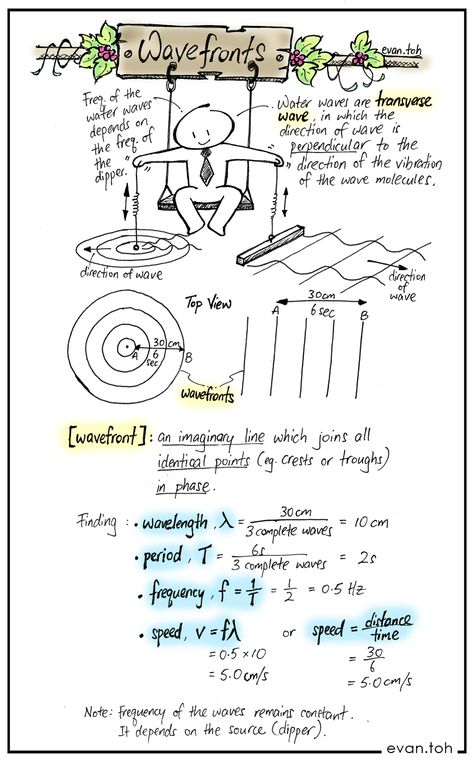 Wavefronts
evan.toh
Freq. of the
water waves
depends on
the freq. of
the
dipper.
Water waves are transverse
wave, in which the
direction of wave is
perpendicular to the
direction of the vibration
of the wave molecules.
direction of wave
direction
of
wave
Top View
30 cm
6
sec
A
B
30cm
6 sec
A
B
wavefronts
[wavefront]: an imaginary line which joins all
identical points (eg. crests or troughs)
in phase.
Finding : • wavelength, λ = 30cm / 3 complete waves = 10 cm
• period, T = 6s / 3 complete waves = 2s
• frequency, f = 1/T = 1/2 = 0.5 Hz
• speed, v = fλ or speed = distance / time
= 0.5 × 10 = 30 / 6
= 5.0 cm/s = 5.0 cm/s
Note: Frequency of the waves remains constant.
It depends on the source (dipper).
evan.toh